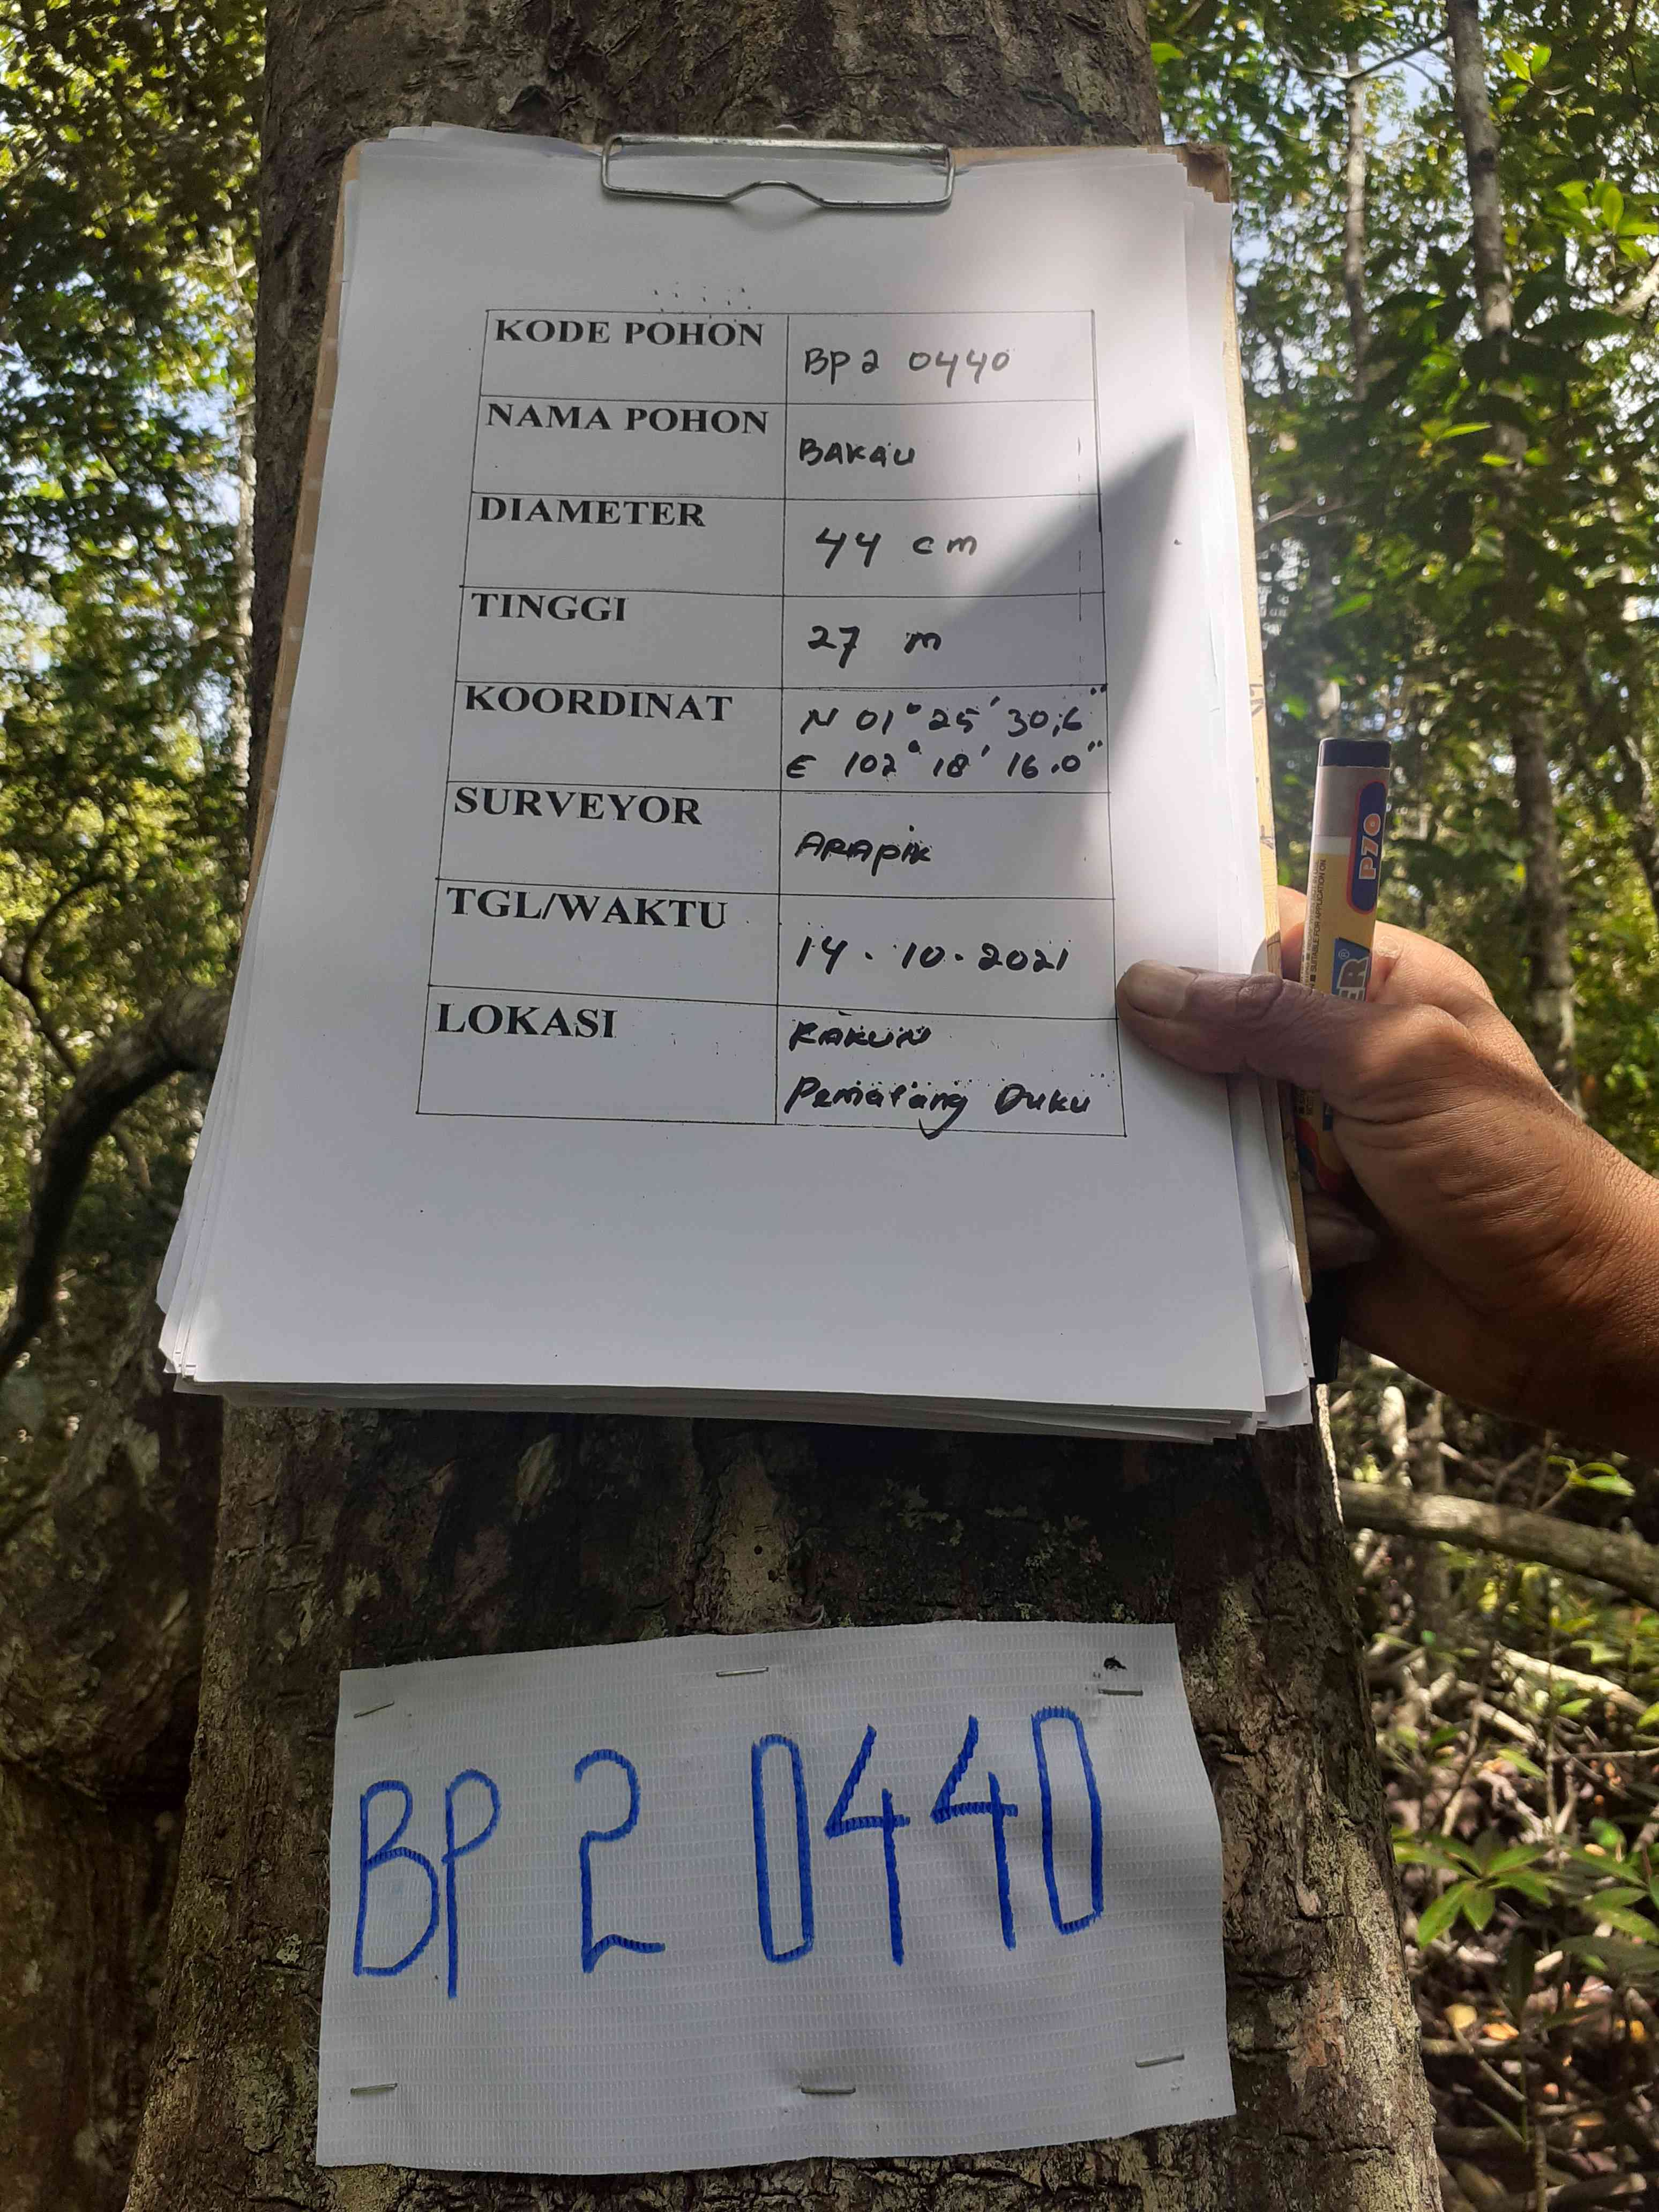 KODE POHON
BP2 0440
NAMA POHON
BAKAU
DIAMETER
44 cm
TINGGI
27 m
KOORDINAT
N 01° 25' 30,6"
E 102° 18' 16.0"
SURVEYOR
ARAPIK
TGL/WAKTU
14.10.2021
LOKASI
RAKUN
Pematang Duku
P70
SUITABLE FOR APPLICATION ON
ER®
BP 2 0440